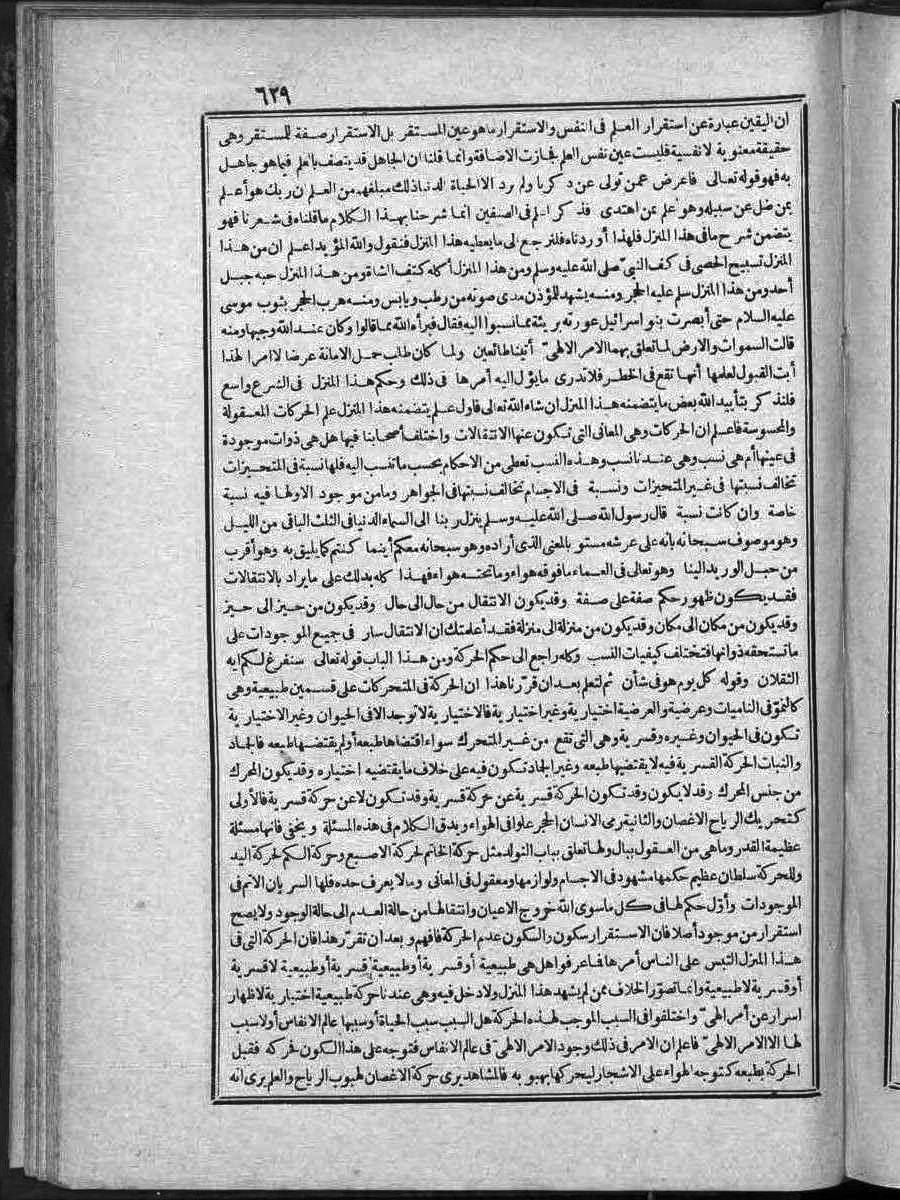 ٦٢٩
ان اليقين عبارة عن استقرار العلم فى النفس والاستقرار ما هو عين المستقر بل الاستقرار صفة للمستقر وهى
حقيقة معنوية لا نفسية فليست عين نفس العلم فجازت الاضافة وانما قلنا ان الجاهل قد يتصف بالعلم فيما هو جاهل
به فهو قوله تعالى فاعرض عمن تولى عن ذكرنا ولم يرد الا الحياة الدنيا ذلك مبلغهم من العلم ان ربك هو أعلم
بمن ضل عن سبيله وهو أعلم بمن اهتدى فذكر العلم فى الصنفين انما شرحنا بهذا الكلام ما قلناه فى شعرنا فهو
يتضمن شرح ما فى هذا المنزل فلهذا أوردناه فلنرجع الى ما يعطيه هذا المنزل فنقول والله المؤيد اعلم ان من هذا
المنزل تسبيح الحصى فى كف النبىّ صلى الله عليه وسلم ومن هذا المنزل أكله كتف الشاة ومن هذا المنزل حبه جبل
أحد ومن هذا المنزل سلم عليه الحجر ومنه يشهد للمؤذن مدى صوته من رطب ويابس ومنه هرب الحجر بثوب موسى
عليه السلام حتى أبصرت بنو اسرائيل عورته بريئة مما نسبوا اليه فقال فبرأه الله مما قالوا وكان عند الله وجيها ومنه
قالت السموات والارض لما تعلق بهما الامر الالهىّ أتينا طائعين ولما كان طلب حمل الامانة عرضا لا امرا لهذا
أبت القبول لعلمها أنها تقع فى الخطر فلا تدرى ما يؤل اليه أمرها فى ذلك وحكم هذا المنزل فى الشرع واسع
فلنذكر بتأييد الله بعض ما يتضمنه هذا المنزل ان شاء الله تعالى فاول علم يتضمنه هذا المنزل علم الحركات المعقولة
والمحسوسة فاعلم ان الحركات وهى المعانى التى تكون عنها الانتقالات واختلف أصحابنا فيها هل هى ذوات موجودة
فى عينها أم هى نسب وهى عندنا نسب وهذه النسب تعطى من الاحكام بحسب ما تنسب اليه فلها نسبة فى المتحيزات
تخالف نسبتها فى غير المتحيزات ونسبة فى الاجسام تخالف نسبتها فى الجواهر وما من موجود الا ولها فيه نسبة
خاصة وان كانت نسبة قال رسول الله صلى الله عليه وسلم ينزل ربنا الى السماء الدنيا فى الثلث الباقى من الليل
وهو موصوف سبحانه بانه على عرشه مستو بالمعنى الذى أراده وهو سبحانه معكم أينما كنتم كما يليق به وهو أقرب
من حبل الوريد الينا وهو تعالى فى العماء ما فوقه هواء وما تحته هواء فهذا كله يدلك على ما يراد بالانتقالات
فقد يكون ظهور حكم صفة على صفة وقد يكون الانتقال من حال الى حال وقد يكون من حيز الى حيز
وقد يكون من مكان الى مكان وقد يكون من منزلة الى منزلة فقد أعلمتك ان الانتقال سار فى جميع الموجودات على
ما تستحقه ذواتها فتختلف كيفيات النسب وكله راجع الى حكم الحركة ومن هذا الباب قوله تعالى سنفرغ لكم ايه
الثقلان وقوله كل يوم هو فى شأن ثم لتعلم بعد ان قررنا هذا ان الحركة فى المتحركات على قسمين طبيعية وهى
كالنموّ فى الناميات وعرضية والعرضية اختيارية وغير اختيارية فالاختيارية لا توجد الا فى الحيوان وغير الاختيارية
تكون فى الحيوان وغيره وقسرية وهى التى تقع من غير المتحرك سواء اقتضاها طبعه أو لم يقتضها طبعه فالجاد
والنبات الحركة القسرية فيه لا يقتضيها طبعه وغير الجاد تكون فيه على خلاف ما يقتضيه اختياره وقد يكون المحرك
من جنس المحرك وقد لا يكون وقد تكون الحركة قسرية عن حركة قسرية وقد تكون لا عن حركة قسرية فالأولى
كتحريك الرياح الاغصان والثانية رمى الانسان الحجر علوا فى الهواء ويدق الكلام فى هذه المسئلة ويخفى فانها مسئلة
عظيمة القدر وما هى من العقول ببال ولها تعلق بباب التولد مثل حركة الخاتم لحركة الاصبع وحركة الكم لحركة اليد
وللحركة سلطان عظيم حكمها مشهود فى الاجسام ولوازمها ومعقول فى المعانى وما لا يعرف حده فلها السريان الاتم فى
الموجودات وأوّل حكم لها فى كل ما سوى الله خروج الاعيان وانتقالها من حالة العدم الى حالة الوجود ولا يصح
استقرار من موجود أصلا فان الاستقرار سكون والسكون عدم الحركة فافهم وبعد ان تقرر هذا فان الحركة التى فى
هذا المنزل التبس على الناس أمرها فما عرفوا هل هى طبيعية أو قسرية أو طبيعية قسرية أو طبيعية لا قسرية
أو قسرية لا طبيعية وانما تصوّر الخلاف ممن لم يشهد هذا المنزل ولا دخل فيه وهى عندنا حركة طبيعية اختيارية لاظهار
اسرار عن أمر الهىّ واختلفوا فى السبب الموجب لهذه الحركة هل السبب سبب الحياة أو سببها عالم الانفاس أو لا سبب
لها الا الامر الالهىّ فاعلم ان الامر فى ذلك وجود الامر الالهىّ فى عالم الانفاس فتوجه على هذا الكون فحركه فقبل
الحركة بطبعه كتوجه الهواء على الاشجار ليحركها بهبوبه فالمشاهد يرى حركة الاغصان لهبوب الرياح والعلم يرى انه